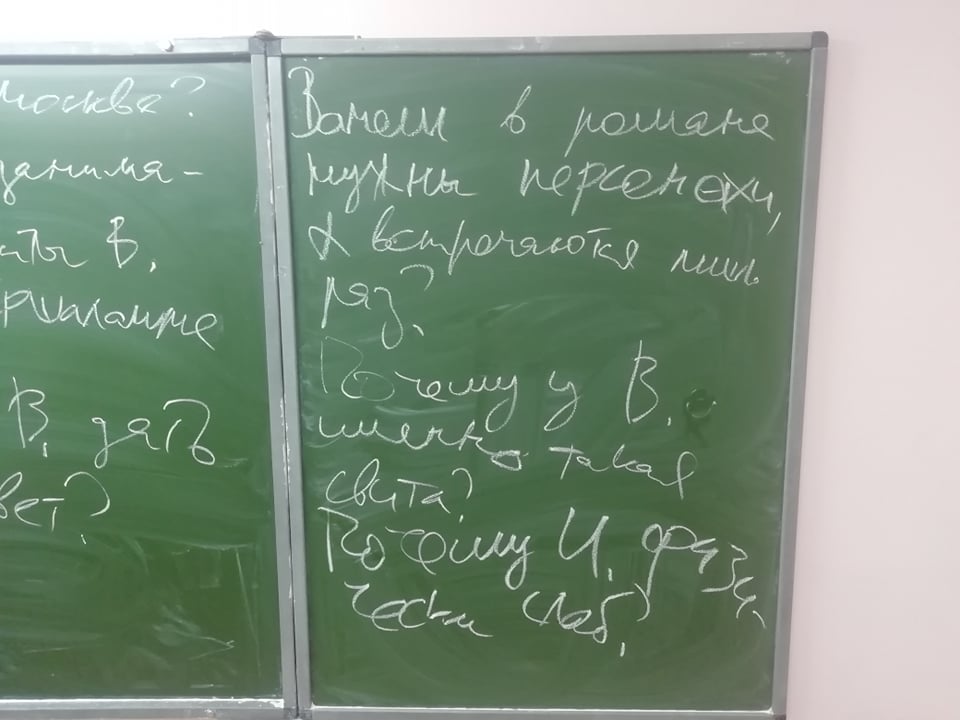 Москва?
занима-
В.
Ершалаиме
В. дать
вет?
Зачем в романе
нужны персонажи,
встречаются лишь
раз?
Почему у В.
именно такая
свита?
Почему И. физи-
чески слаб?